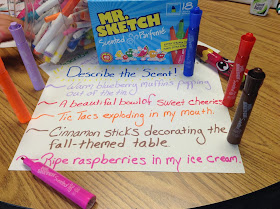 18
MR. SKETCH
Scented
Describe the Scent!
blueberry muffins popping
out of the
A beautiful bowl of sweet cheeries
Tic Tacs exploding in my mouth.
Cinnamon sticks decorating the
fall-themed table.
Ripe raspberries in my ice cream.